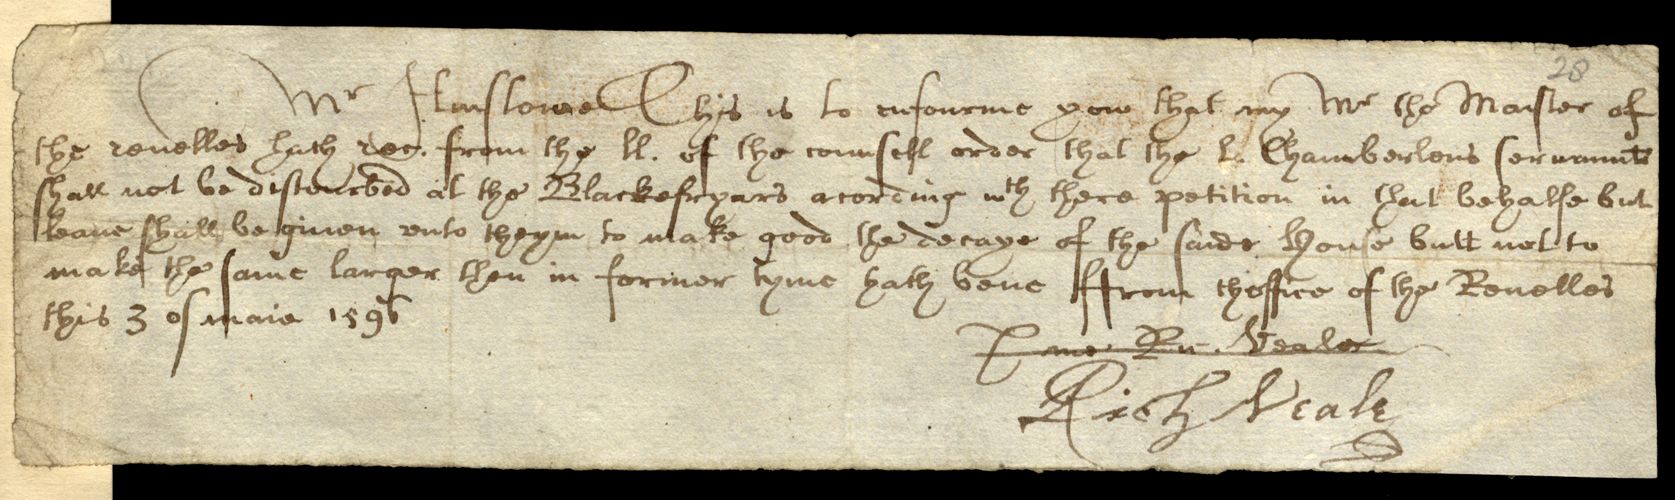 28
Mr Hinslowe This is to enfourme yow that my Mr the Maister of
the revelles hath rec. from the ll. of the counsell order that the L. Chamberlens servauntes
shall not be distourbed at the Blackefryars acording wth there petition in that behalfe but
leave shall be given unto theym to make good the decaye of the saide House butt not to
make the same larger then in former tyme hath bene ffrom thoffice of the Revelles
this 3 of maie 1596
Ry. Veale
Rich Veale